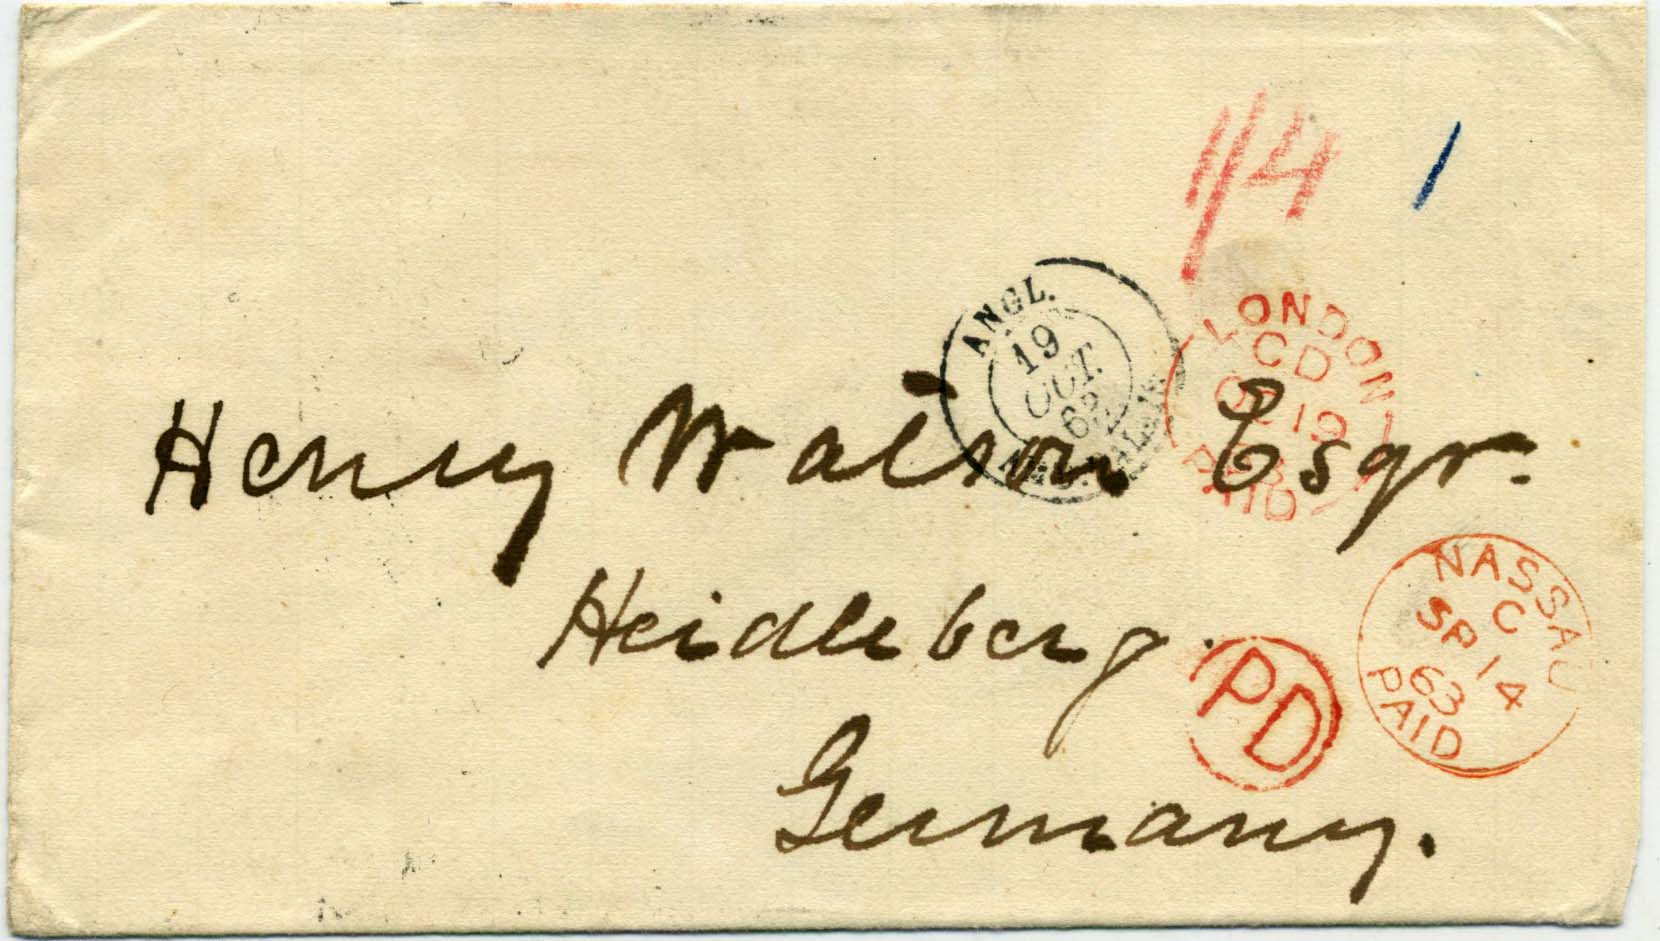 1/4 1
ANGL.
19
OCT.
63
CALAIS
LONDON
CD
OC 19
63
PAID
Henry Watson Esqr.
Heidleberg.
Germany.
NASSAU
C
SP 14
63
PAID
PD